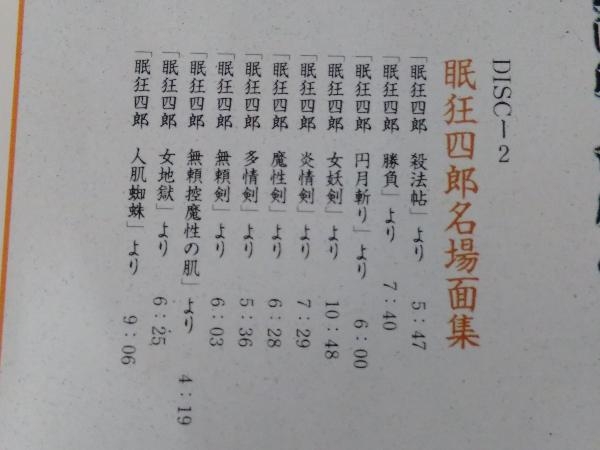 DISC－2
眠狂四郎名場面集
「眠狂四郎　殺法帖」より　5：47
「眠狂四郎　勝負」より　7：40
「眠狂四郎　円月斬り」より　6：00
「眠狂四郎　女妖剣」より　10：48
「眠狂四郎　炎情剣」より　7：29
「眠狂四郎　魔性剣」より　6：28
「眠狂四郎　多情剣」より　5：36
「眠狂四郎　無頼剣」より　6：03
「眠狂四郎　無頼控魔性の肌」より　4：19
「眠狂四郎　女地獄」より　6：25
「眠狂四郎　人肌蜘蛛」より　9：06